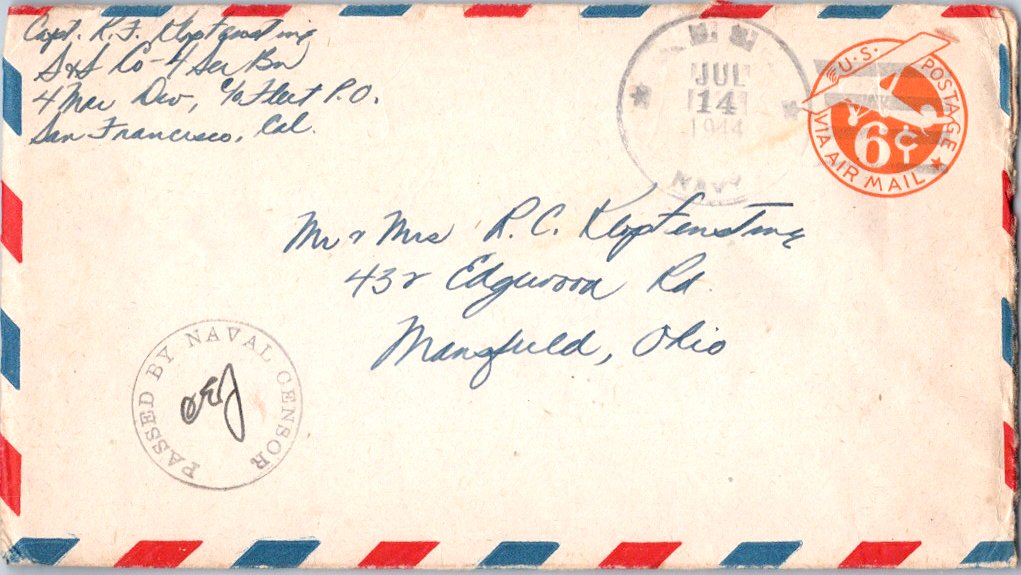 Capt. R. F. Klopfensting
S&S Co - 4 Ser Bn
4 Mar Div, c/o Fleet P.O.
San Francisco, Cal.
U. S.
JUL
14
1944
NAVY
U.S. POSTAGE
6¢
VIA AIR MAIL
Mr & Mrs R. C. Klopfensting
432 Edgewood Rd.
Mansfield, Ohio
PASSED BY NAVAL CENSOR